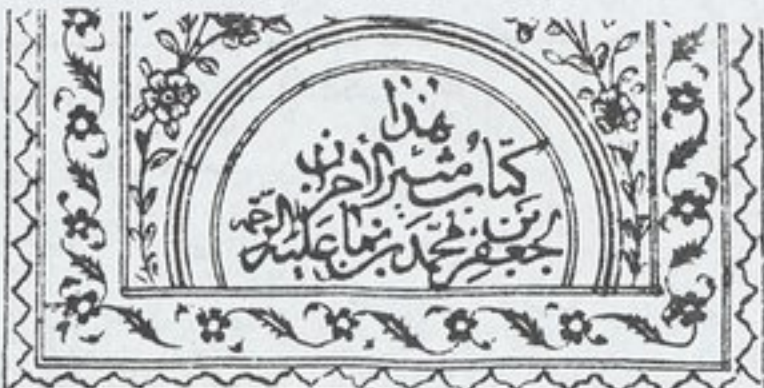 هذا
كتاب مثير الأحزان
لجعفر بن محمد بن نما عليه الرحمة